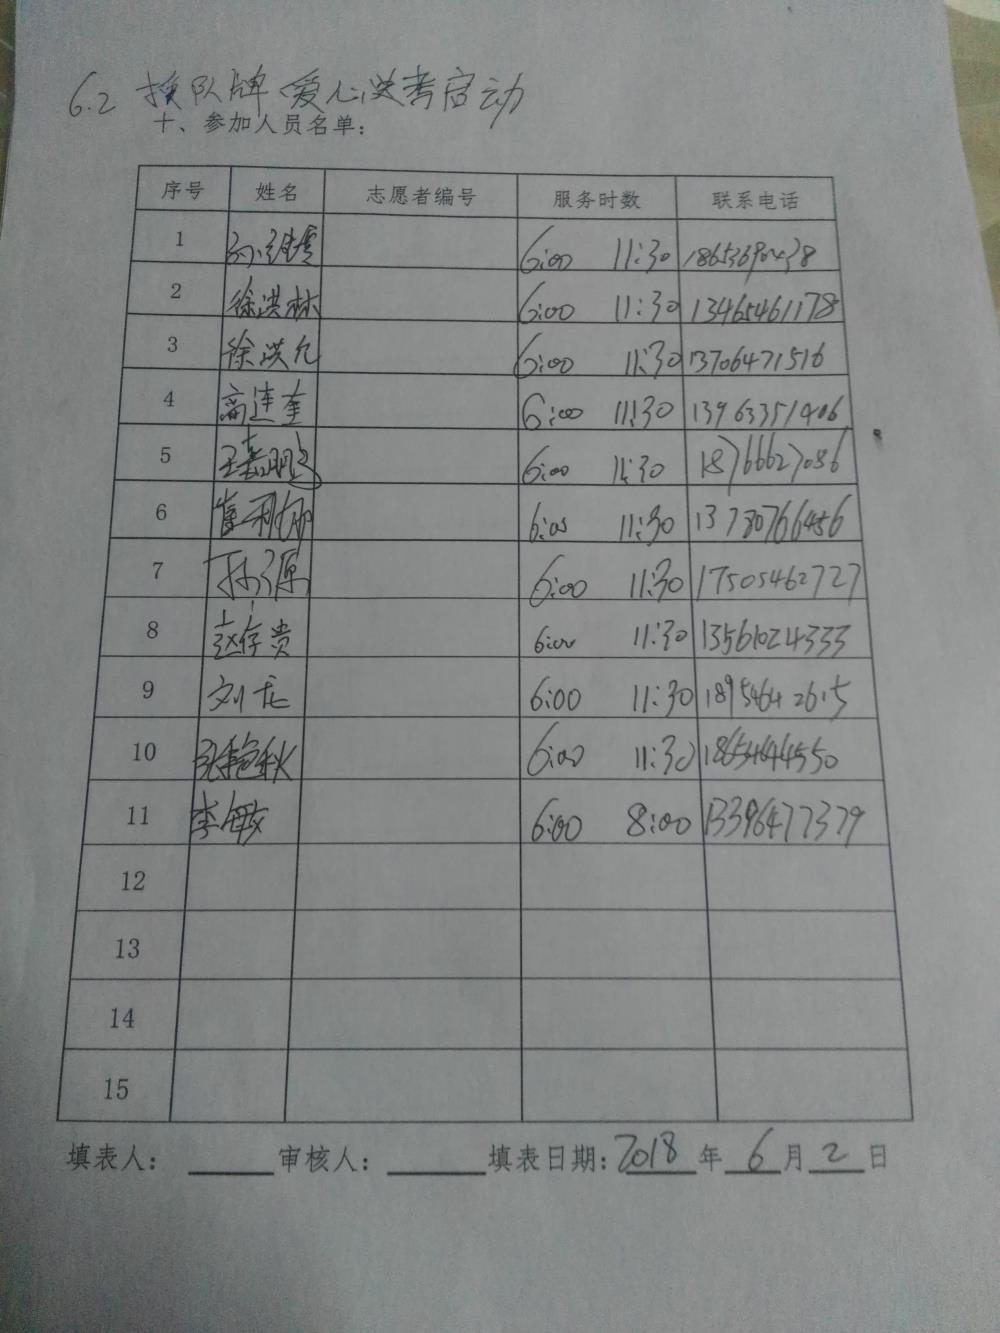 6.2 授队牌 爱心送考启动
十、参加人员名单：
序号 姓名 志愿者编号 服务时数 联系电话
1 6:00 11:30
2 徐洪林 6:00 11:30 13465461178
3 徐洪允 6:00 11:30 13706471516
4 高连奎 6:00 11:30 13963351406
5 王嘉鹏 6:00 11:30 18766627086
6 6:00 11:30 13780766456
7 孙源 6:00 11:30 17505462727
8 赵存贵 6:00 11:30 13561024333
9 刘龙 6:00 11:30 18954642615
10 张艳秋 6:00 11:30 18654644550
11 李敏 6:00 8:00 13396477379
12
13
14
15
填表人： 审核人： 填表日期：2018年6月2日